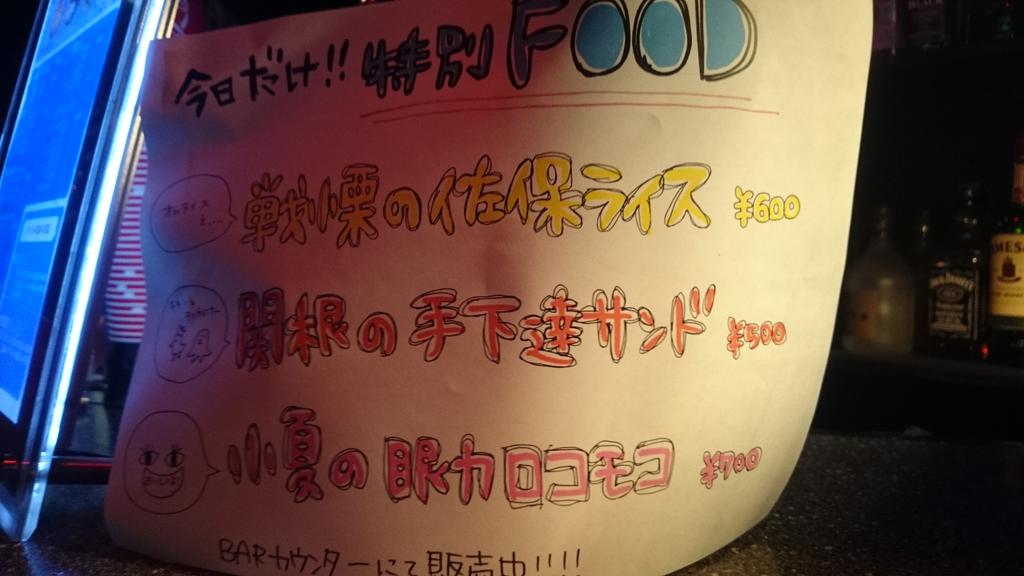 今日だけ!! 特別 FOOD
オムライスと....
戦慄の佐保ライス ¥600
関根の手下達サンド ¥500
小夏の眼力ロコモコ ¥700
BARカウンターにて販売中!!!!